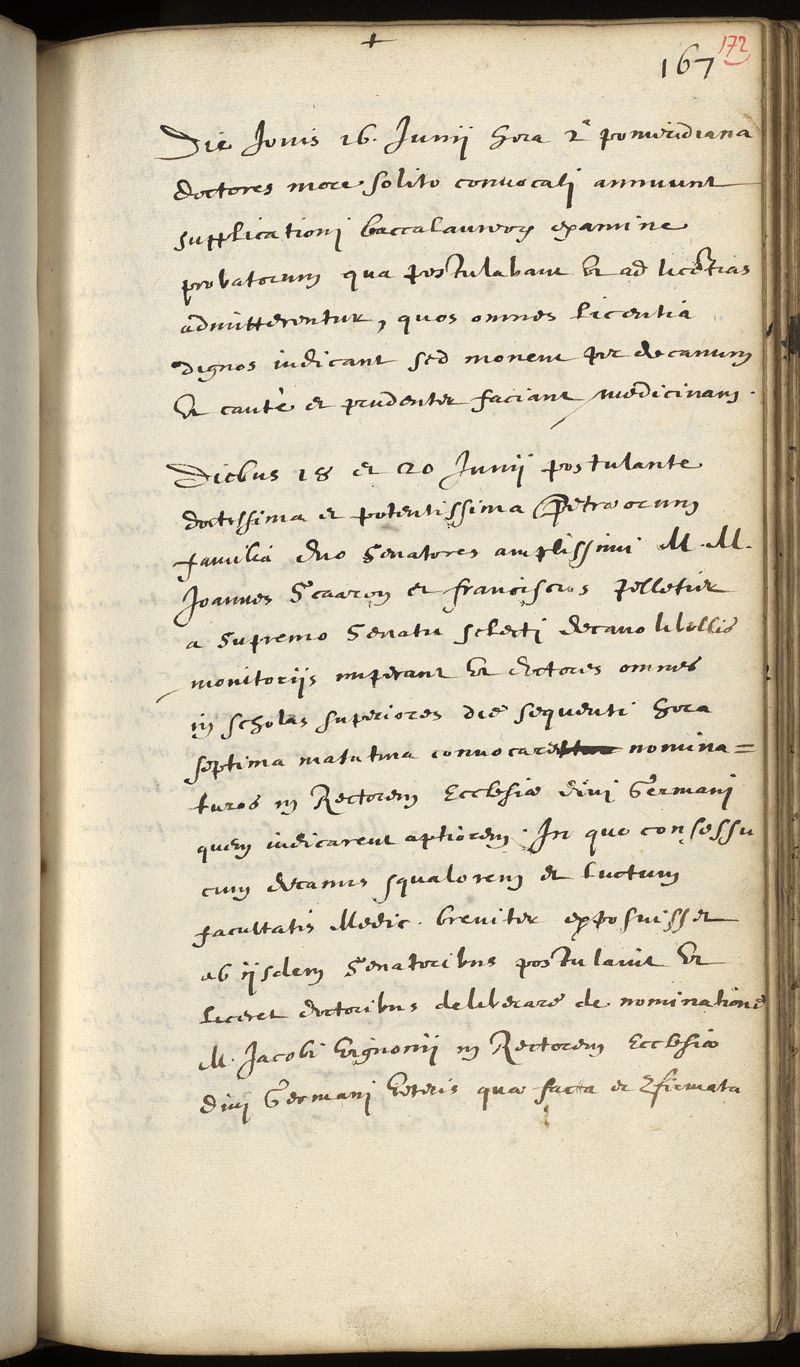 +
167 172
Die Jovis 16. Junij hora 2ª pomeridiana
doctores more solito convocatj annuunt
supplicationj baccalaureorum examine
probatorum qua postulabant ut ad licentias
admitterentur, quos omnes licentia
dignos iudicant sed monent per decanum
ut cautè et prudenter faciant medicinam.
Diebus 18 et 20 Junij postulante
doctissima et potentissima Petræorum
familia duo Senatores amplissimi M.M.
Joannes Scaaron et franciscus pelletier
a supremo Senatu selecti decano libellis
monitoriis imperant ut doctores omnes
in scholas superiores die sequenti hora
septima matutina convocaret nomina=
turos in Rectorem Ecclesiæ divi Germanj
quem iudicarent aptiorem. In quo consessu
cum decanus squalorem et luctum
facultatis Medic. breviter exposuisset
ab iisdem Senatoribus postulavit ut
liceret doctoribus deliberare de nominatione
M. Jacobi Vignonij in Rectorem Ecclesiæ
divj Germanj veteris quæ facta et 2firmata